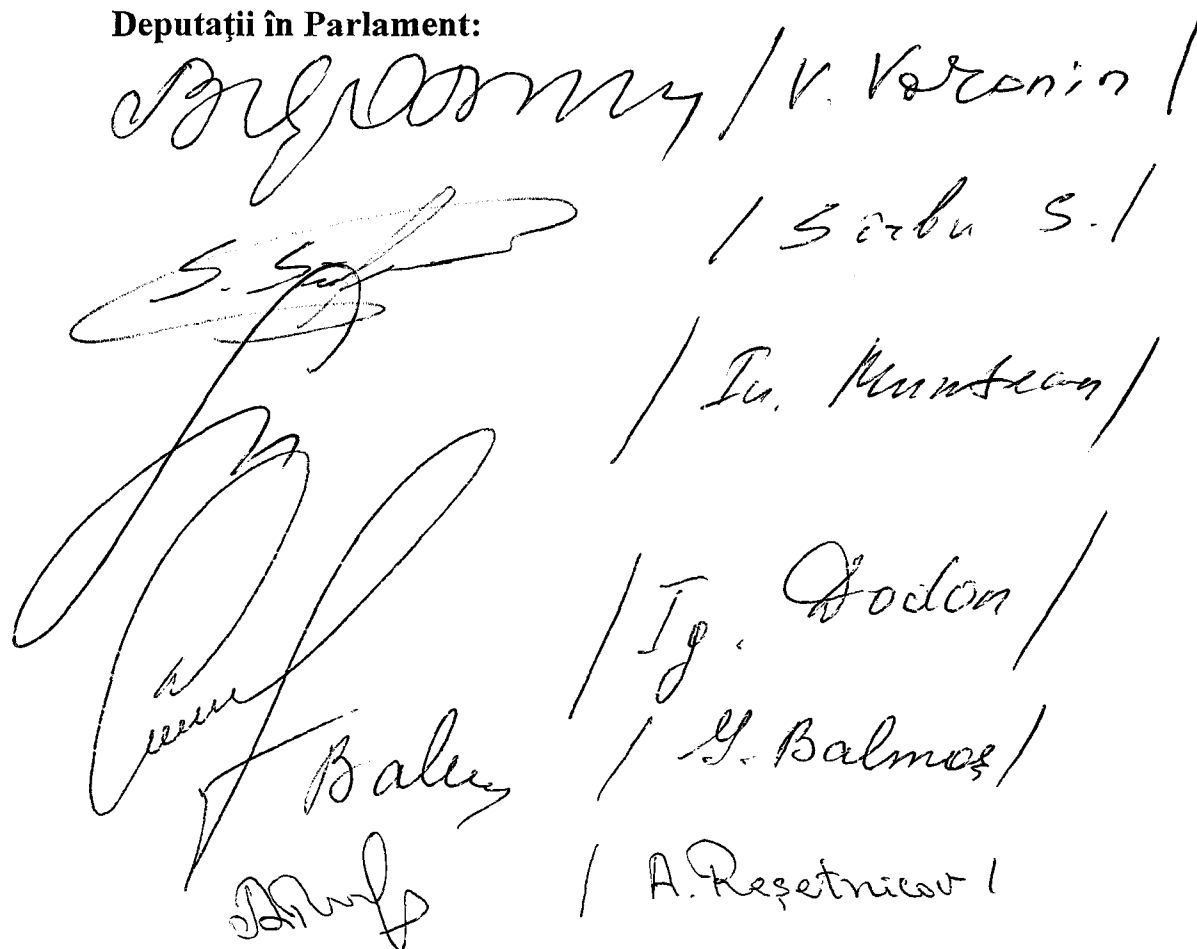 Deputaţii în Parlament:
/ V. Voronin /
S. Sîrbu / Sîrbu S. /
/ Iu. Muntean /
/ Ig. Dodon /
/ G. Balmoș /
/ A. Reșetnicov /